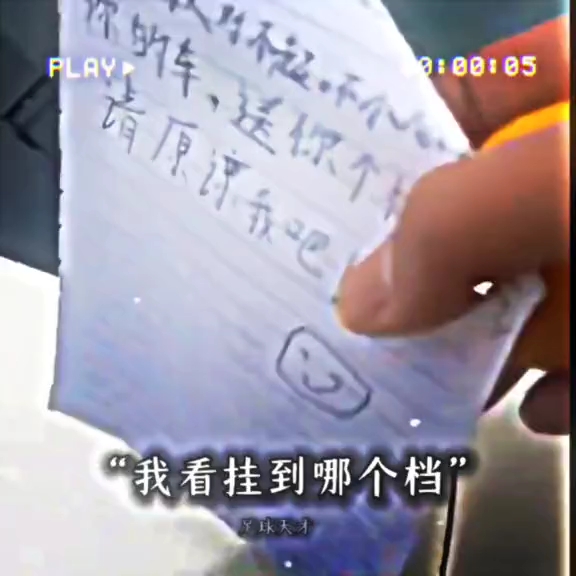 PLAY▶
0:00:05
对不起,不小心
你的车、送你个
请原谅我吧
“我看挂到哪个档”
足球天才